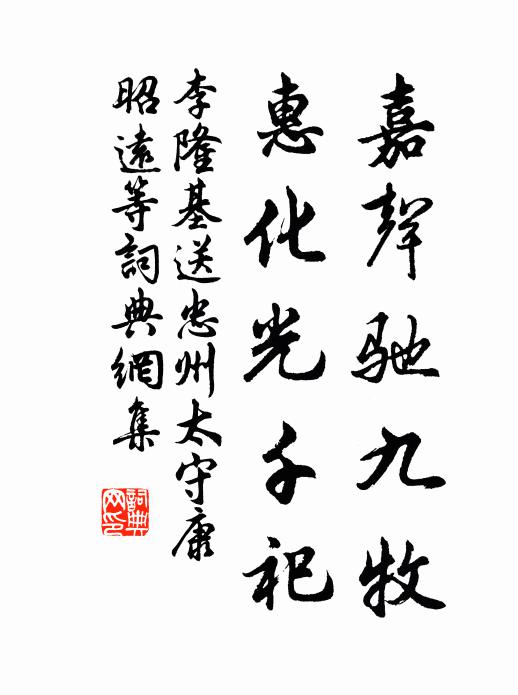 嘉聲馳九牧
惠化光千祀
李隆基送忠州太守康
昭遠等詞典網集
詞典
网印